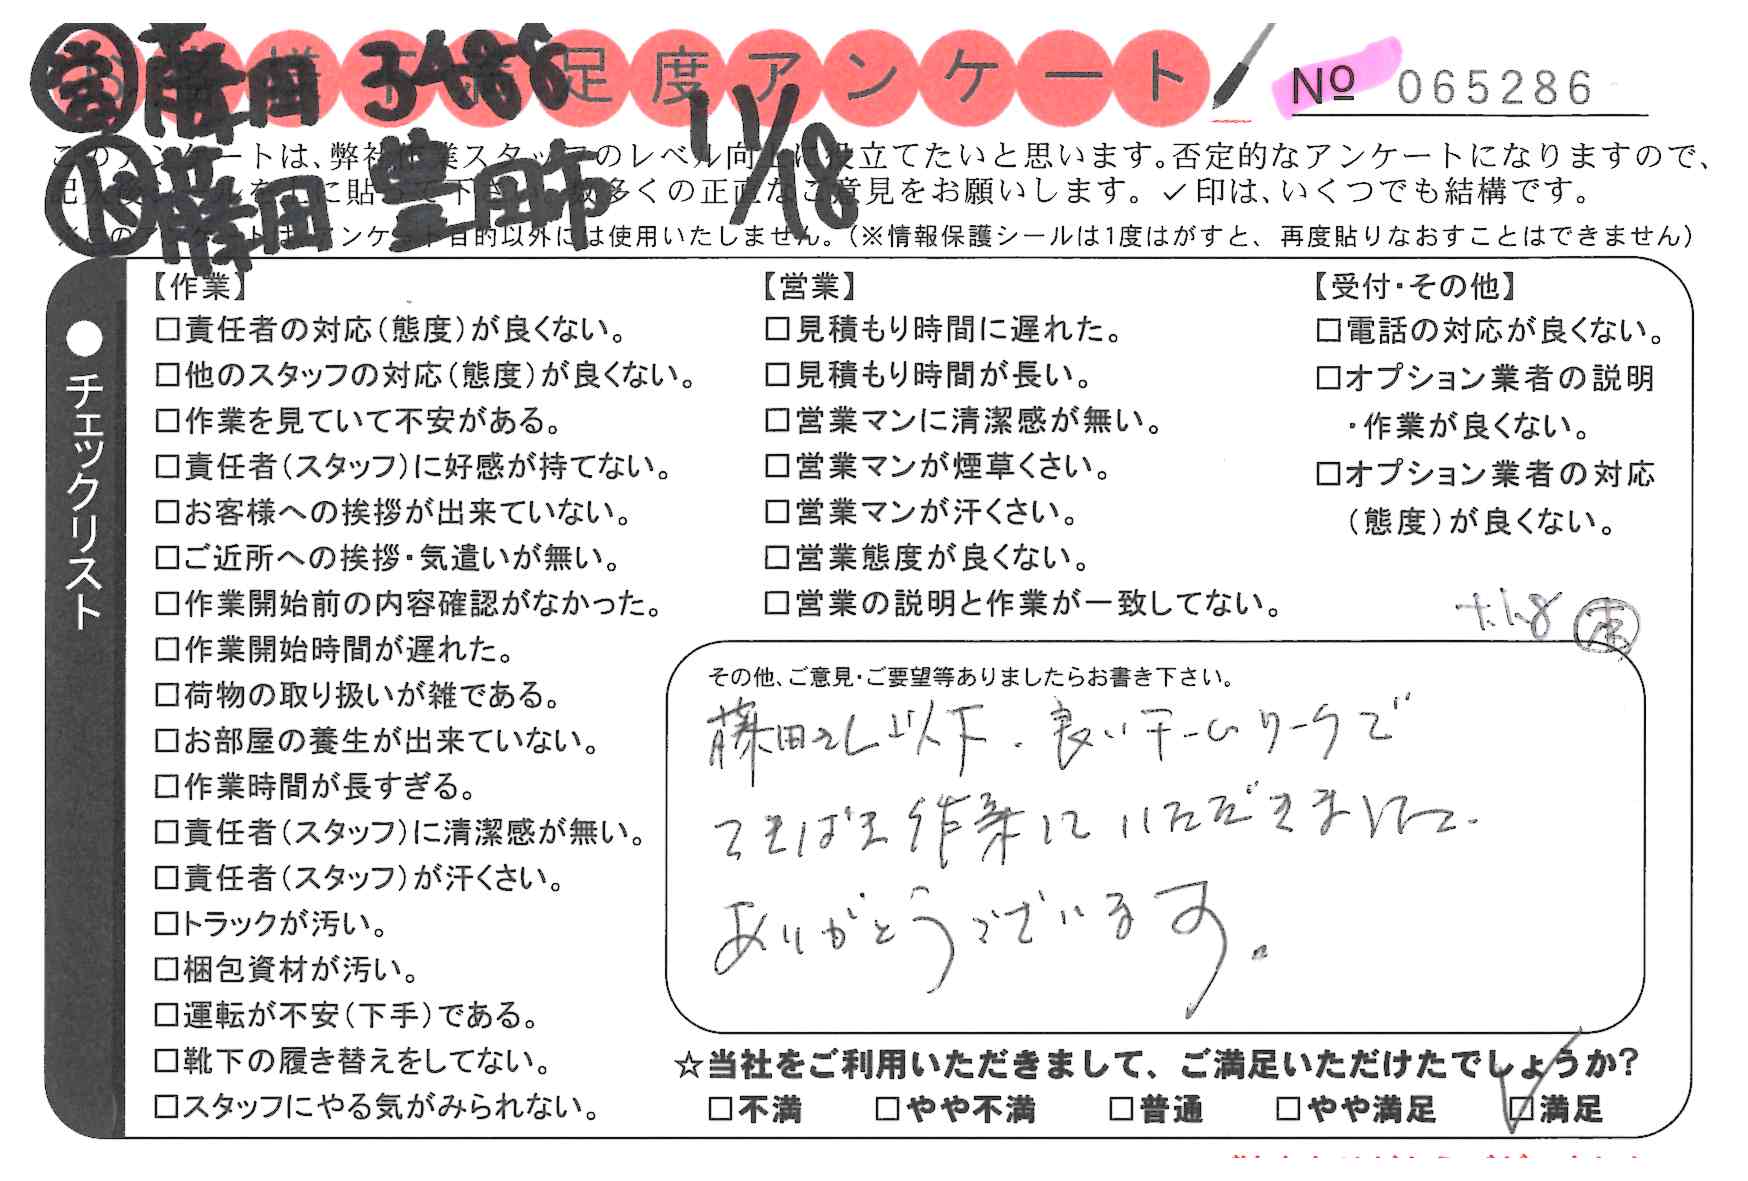 営 藤田 3488 足度アンケート No 065286
藤田 豊田市 11/18
このアンケートは、弊社作業スタッフのレベル向上に役立てたいと思います。否定的なアンケートになりますので、
記入後シールを上に貼って下さい。数多くの正直なご意見をお願いします。✓印は、いくつでも結構です。
※このアンケートはアンケート目的以外には使用いたしません。(※情報保護シールは1度はがすと、再度貼りなおすことはできません)
●チェックリスト
【作業】
□責任者の対応(態度)が良くない。
□他のスタッフの対応(態度)が良くない。
□作業を見ていて不安がある。
□責任者(スタッフ)に好感が持てない。
□お客様への挨拶が出来ていない。
□ご近所への挨拶・気遣いが無い。
□作業開始前の内容確認がなかった。
□作業開始時間が遅れた。
□荷物の取り扱いが雑である。
□お部屋の養生が出来ていない。
□作業時間が長すぎる。
□責任者(スタッフ)に清潔感が無い。
□責任者(スタッフ)が汗くさい。
□トラックが汚い。
□梱包資材が汚い。
□運転が不安(下手)である。
□靴下の履き替えをしてない。
□スタッフにやる気がみられない。
【営業】
□見積もり時間に遅れた。
□見積もり時間が長い。
□営業マンに清潔感が無い。
□営業マンが煙草くさい。
□営業マンが汗くさい。
□営業態度が良くない。
□営業の説明と作業が一致してない。
【受付・その他】
□電話の対応が良くない。
□オプション業者の説明
・作業が良くない。
□オプション業者の対応
(態度)が良くない。
その他、ご意見・ご要望等ありましたらお書き下さい。
藤田さん以下、良いチームワークで
てきぱき作業していただきました。
ありがとうございます。
☆当社をご利用いただきまして、ご満足いただけたでしょうか?
□不満 □やや不満 □普通 □やや満足 ☑満足